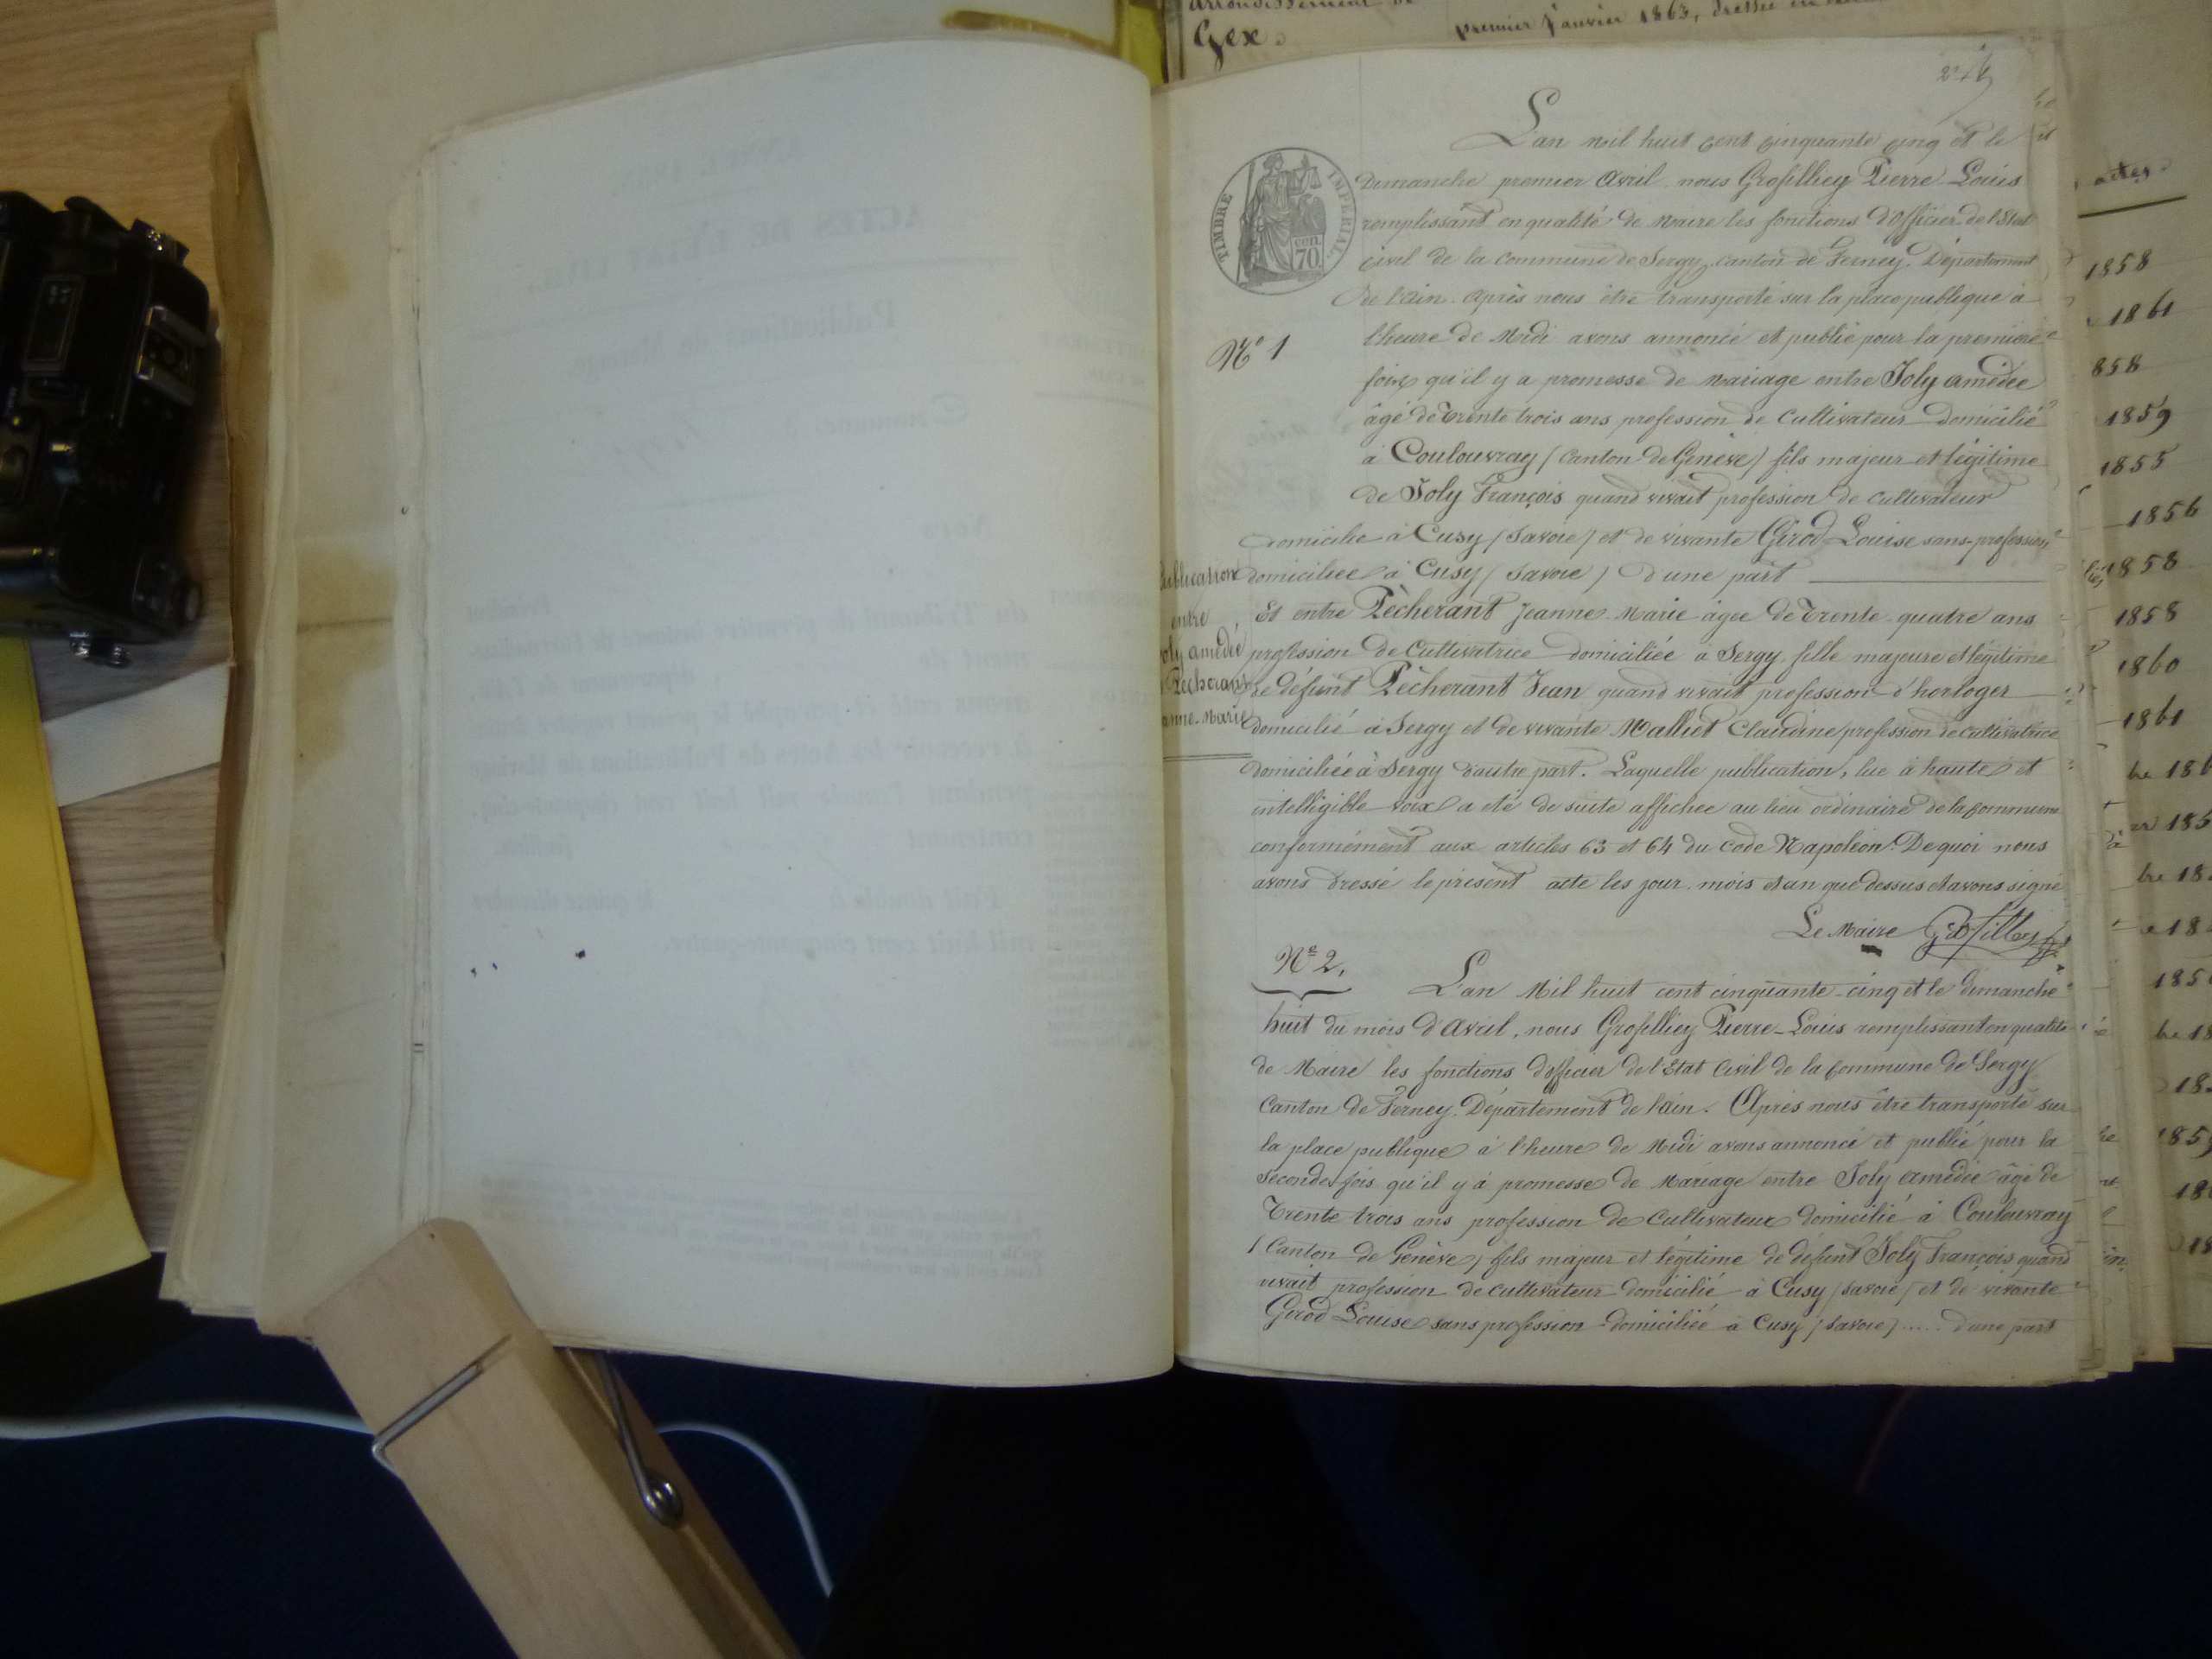 Gex.
premier Janvier 1863, dressée en
TIMBRE IMPERIAL
70.
L'an mil huit cent cinquante cinq et le
dimanche premier Avril nous Grosfilliey Pierre-Louis
remplissant en qualité de Maire les fonctions d'Officier de l'Etat
civil de la commune de Sergy canton de Ferney. Département
de l'Ain. Après nous être transporté sur la place publique à
l'heure de Midi avons annoncé et publié pour la première
fois qu'il y a promesse de Mariage entre Joly Amédée
âgé de Trente trois ans profession de Cultivateur domicilié
à Coulouvray (Canton de Genève) fils majeur et légitime
de Joly François quand vivait profession de cultivateur
domicilié à Cusy (Savoie) et de vivante Girod Louise sans profession
domiciliée à Cusy (Savoie) d'une part
Et entre Pècherant Jeanne-Marie âgée de Trente-quatre ans
profession de Cultivatrice domiciliée à Sergy fille majeure et légitime
de défunt Pècherant Jean quand vivait profession d'horloger
domicilié à Sergy et de vivante Malliet Claudine profession de cultivatrice
domiciliée à Sergy d'autre part. Laquelle publication, lue à haute et
intelligible voix a été de suite affichée au lieu ordinaire de la commune
conformément aux articles 63 et 64 du Code Napoléon. De quoi nous
avons dressé le présent acte les jour, mois et an que dessus et avons signé
Le Maire Grosfilliey
N° 1
Publication
entre
Joly Amédée
Pècherant
Jeanne-Marie
N° 2,
L'an Mil huit cent cinquante-cinq et le dimanche
huit du mois d'Avril, nous Grosfilliey Pierre-Louis remplissant en qualité
de Maire les fonctions d'officier de l'Etat Civil de la Commune de Sergy
Canton de Ferney. Département de l'Ain. Après nous être transporté sur
la place publique à l'heure de Midi avons annoncé et publié pour la
seconde fois qu'il y à promesse de Mariage entre Joly Amédée âgé de
Trente trois ans profession de Cultivateur domicilié à Coulouvray
(Canton de Genève) fils majeur et légitime de défunt Joly François quand
vivait profession de cultivateur domicilié à Cusy (Savoie) et de vivante
Girod Louise sans profession domiciliée à Cusy (Savoie) ..... d'une part
actes.
1858
1861
858
1859
1855
1856
1858
1858
1860
1861